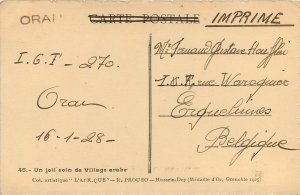 ORAN
CARTE POSTALE
IMPRIME
I.G.T - 270.
Oran
16-1-28-
Mr Fernand Gustave
rue
Erquelinnes
Belgique
45. - Un joli coin de Village arabe
Col. artistique "L'AFRIQUE" - R. PROUHO - Hussein-Dey (Médaille d'Or, Grenoble 1925)